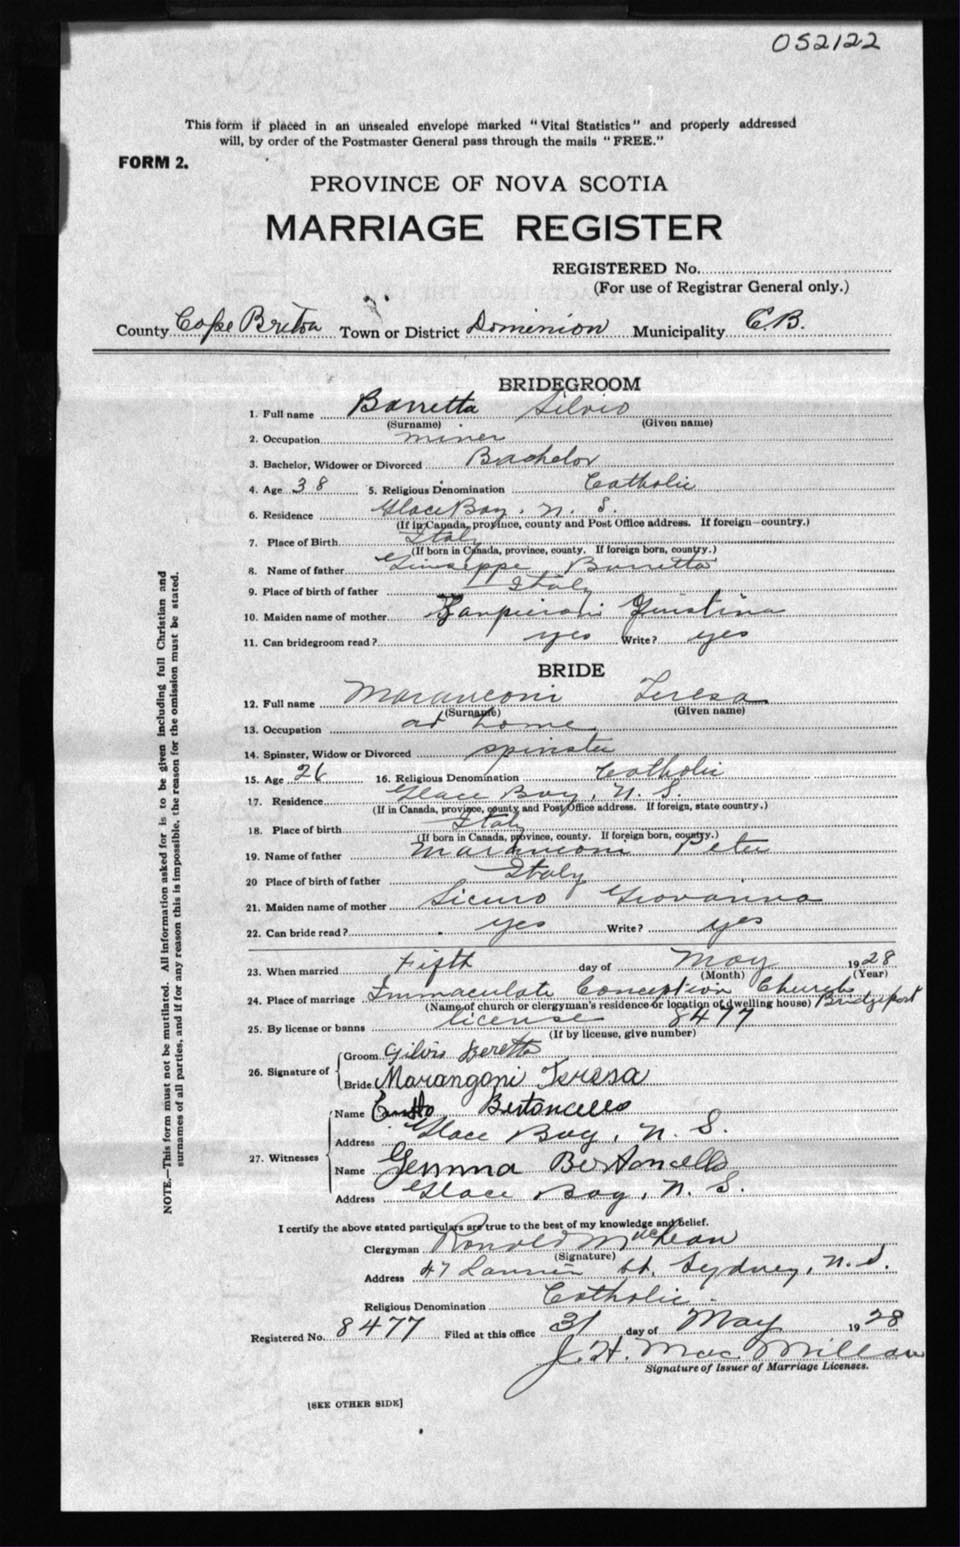 052122
This form if placed in an unsealed envelope marked "Vital Statistics" and properly addressed
will, by order of the Postmaster General pass through the mails "FREE."
FORM 2.
PROVINCE OF NOVA SCOTIA
MARRIAGE REGISTER
REGISTERED No.
(For use of Registrar General only.)
County Cape Breton Town or District Dominion Municipality C.B.
BRIDEGROOM
1. Full name Barretta Silvio
(Surname) (Given name)
2. Occupation miner
3. Bachelor, Widower or Divorced Bachelor
4. Age 38 5. Religious Denomination Catholic
6. Residence Glace Bay, N. S.
(If in Canada, province, county and Post Office address. If foreign—country.)
7. Place of Birth Italy
(If born in Canada, province, county. If foreign born, country.)
8. Name of father Giuseppe Barretta
9. Place of birth of father Italy
10. Maiden name of mother Giustina
11. Can bridegroom read? yes Write? yes
BRIDE
12. Full name Maranconi Teresa
(Surname) (Given name)
13. Occupation at home
14. Spinster, Widow or Divorced spinster
15. Age 26 16. Religious Denomination Catholic
17. Residence Glace Bay, N. S.
(If in Canada, province, county and Post Office address. If foreign, state country.)
18. Place of birth Italy
(If born in Canada, province, county. If foreign born, country.)
19. Name of father Maranconi Peter
20 Place of birth of father Italy
21. Maiden name of mother Sicuro Giovanna
22. Can bride read? yes Write? yes
23. When married Fifth day of May 1928
(Month) (Year)
24. Place of marriage Immaculate Conception Church Bridgeport
(Name of church or clergyman's residence or location of dwelling house)
25. By license or banns license 8477
(If by license, give number)
26. Signature of
Groom Silvio Beretta
Bride Marangoni Teresa
27. Witnesses
Name Bertoncello
Address Glace Bay, N. S.
Name Gemma Bertoncello
Address Glace Bay, N. S.
I certify the above stated particulars are true to the best of my knowledge and belief.
Clergyman Ronald MacLean
(Signature)
Address 47 St. Sydney, N.S.
Religious Denomination Catholic
Registered No. 8477 Filed at this office 31 day of May 1928
J. H. MacMillan
Signature of Issuer of Marriage Licenses.
[SEE OTHER SIDE]
NOTE.—This form must not be mutilated. All information asked for is to be given including full Christian and
surnames of all parties, and if for any reason this is impossible, the reason for the omission must be stated.